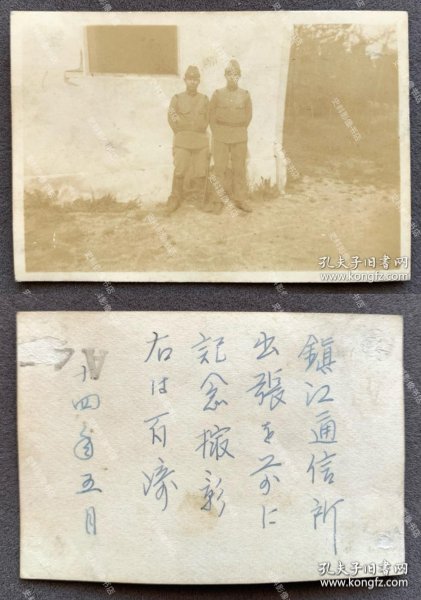 孔夫子旧书网
www.kongfz.com
鎮江通信所
出張を前に
記念撮影
右は百濟
十四年五月
孔夫子旧书网
www.kongfz.com